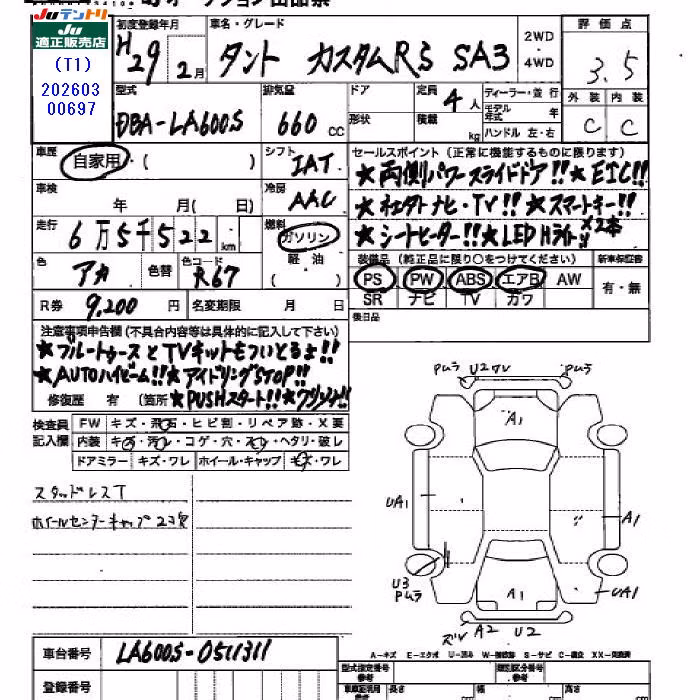 Juテントリ
Ju
適正販売店
(T1)
202603
00697
初度登録年月
H29 2月
車名・グレード
タント カスタムRS SA3
2WD
・
4WD
評価点
3.5
外装 内装
C C
型式
DBA-LA600S
排気量
660 CC
ドア
形状
定員 4人
積載 kg
ディーラー・並行
モデル年式 年
ハンドル 左・右
車歴
自家用・( )
シフト
IAT
セールスポイント (正常に機能するものに限ります)
★両側パワースライドドア!!★ETC!!
★ナビ・TV!!★スマートキー!!
★シートヒーター!!★LED Hライト ×2本
車検
年 月( 日)
冷房
AAC
走行
6万5千522km
燃料
ガソリン
軽油
( )
色
アカ
色替
色コード
R67
装備品 (純正品に限り○をつけてください)
PS PW ABS エアB AW
SR ナビ TV カワ
新車保証書
有・無
R券 9,200円
名変期限 月 日
後日品
注意事項申告欄 (不具合内容等は具体的に記入して下さい)
★ブルートゥースとTVキットもついとるよ!!
★AUTOハイビーム!!★アイドリングSTOP!!
修復歴 有 (箇所 ★PUSHスタート!!★
検査員
記入欄
FW キズ・飛石・ヒビ割・リペア跡・X要
内装 キズ・汚れ・コゲ・穴・スレ・ヘタリ・破レ
ドアミラー キズ・ワレ ホイール・キャップ キズ・ワレ
スタッドレスT
ホイールセンターキャップ2コ欠
Pムラ U2ワレ Pムラ
A1
UA1
A1
U3
Pムラ
A1
UA1
A2 U2
A-キズ E-エクボ U-凹み
車台番号 LA600S-0511311
登録番号
型式指定番号
類別区分番号
長さ 幅 高さ